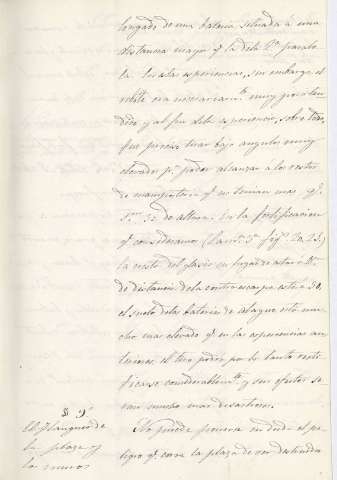 longado de una bateria situada á una
distancia mayor q. la dela 2ª parale
la. En estas esperiencias, sin embargo el
era necesariamte muy poco ten
dido, y al fin dela esperiencia, sobre todo,
fue preciso tirar bajo angulos muy
elevados pª poder alcanzar á los restos
de mamposteria q. no tenian mas qe.
32 de altura. En la fortificacion
q. consideramos (Lamª 3ª fig. 20, 23.)
la cresta del glasis en lugar de estar á
de distancia dela contraescarpa está á 30,
el suelo delas baterias de ataque está mu
cho mas elevado qe. en las esperiencias an
teriores, el tiro podrá por lo tanto recti
ficarse considerablemte. y sus efectos se
ran mucho mas desastrosos.
§ 9º
El flanqueo de
la plaza y
los muros
No puede ponerse en duda el pe
ligro qe. corre la plaza de ser destruida